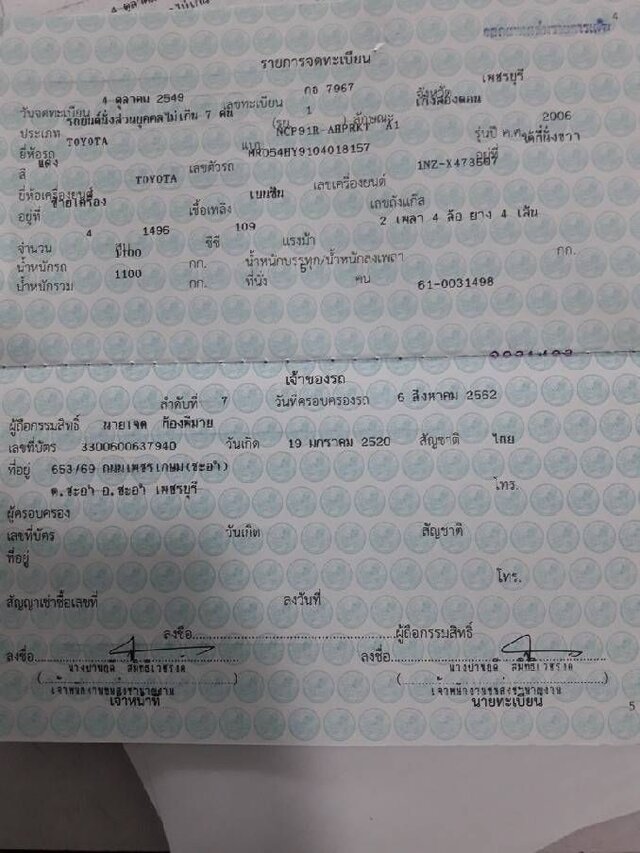 4
รายการจดทะเบียน
วันจดทะเบียน 4 ตุลาคม 2549 เลขทะเบียน กอ 7967 จังหวัด เพชรบุรี
ประเภท รถยนต์นั่งส่วนบุคคลไม่เกิน 7 คน (รย. 1 ) ลักษณะ เก๋งสองตอน
ยี่ห้อรถ TOYOTA แบบ NCP91R-AHPRKT A1 รุ่นปี ค.ศ. 2006
สี แดง เลขตัวรถ MR054HY9104018157 อยู่ที่ ใต้ที่นั่งขวา
ยี่ห้อเครื่องยนต์ TOYOTA เลขเครื่องยนต์ 1NZ-X473587
อยู่ที่ ซ้ายเครื่อง เชื้อเพลิง เบนซิน เลขถังแก๊ส
จำนวน 4 สูบ 1496 ซีซี 109 แรงม้า 2 เพลา 4 ล้อ ยาง 4 เส้น
น้ำหนักรถ 1100 กก. น้ำหนักบรรทุก/น้ำหนักลงเพลา กก.
น้ำหนักรวม 1100 กก. ที่นั่ง 5 คน 61-0031498
เจ้าของรถ
ลำดับที่ 7 วันที่ครอบครองรถ 6 สิงหาคม 2562
ผู้ถือกรรมสิทธิ์ นายเจด ก้องพิมาย
เลขที่บัตร 3300600637940 วันเกิด 19 มกราคม 2520 สัญชาติ ไทย
ที่อยู่ 653/69 ถนนเพชรเกษม(ชะอำ)
ต.ชะอำ อ.ชะอำ เพชรบุรี โทร.
ผู้ครอบครอง
เลขที่บัตร วันเกิด สัญชาติ
ที่อยู่
โทร.
สัญญาเช่าซื้อเลขที่ ลงวันที่
ลงชื่อ ผู้ถือกรรมสิทธิ์
ลงชื่อ ลงชื่อ
เจ้าพนักงานขนส่งชำนาญงาน เจ้าพนักงานขนส่งชำนาญงาน
เจ้าหน้าที่ นายทะเบียน
5